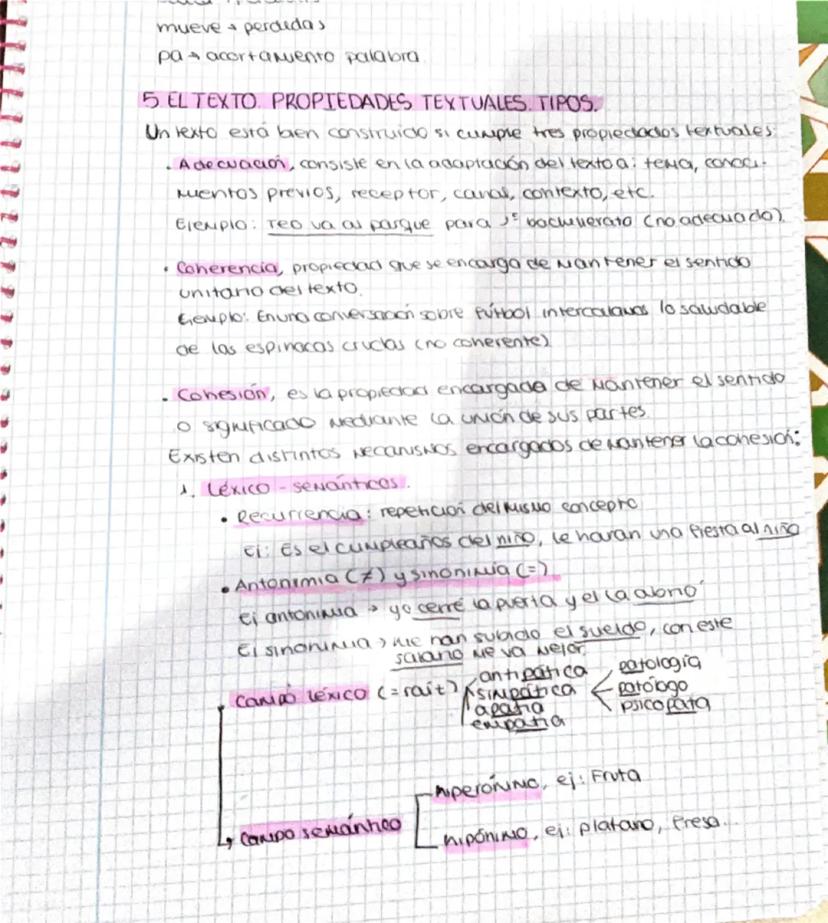 mueve → perdidas
pa → acortamiento palabra
5 EL TEXTO. PROPIEDADES TEXTUALES. TIPOS.
Un texto está bien construido si cumple tres propiedades textuales:
· Adecuación, consiste en la adaptación del texto a: tema, conoci-
mientos previos, receptor, canal, contexto, etc.
Ejemplo: Teo va al parque para 1º bachillerato (no adecuado).
· Coherencia, propiedad que se encarga de mantener el sentido
unitario del texto.
Ejemplo: En una conversación sobre fútbol intercalamos lo saludable
de las espinacas crudas (no coherente)
· Cohesión, es la propiedad encargada de mantener el sentido
o significado mediante la unión de sus partes
Existen distintos mecanismos encargados de mantener la cohesión:
1. Léxico - semánticos.
• Recurrencia: repetición del mismo concepto
Ej: Es el cumpleaños del niño, le harán una fiesta al niño
• Antonimia (≠) y sinonimia (=)
Ej antonimia → yo cerré la puerta y él la abrió
Ej sinonimia → me han subido el sueldo, con este
salario me va mejor.
Campo léxico (= raíz) antipática simpática apatía empatía patología patólogo psicopata
Campo semántico
hiperónimo, ej: Fruta
hipónimo, ej: platano, fresa...